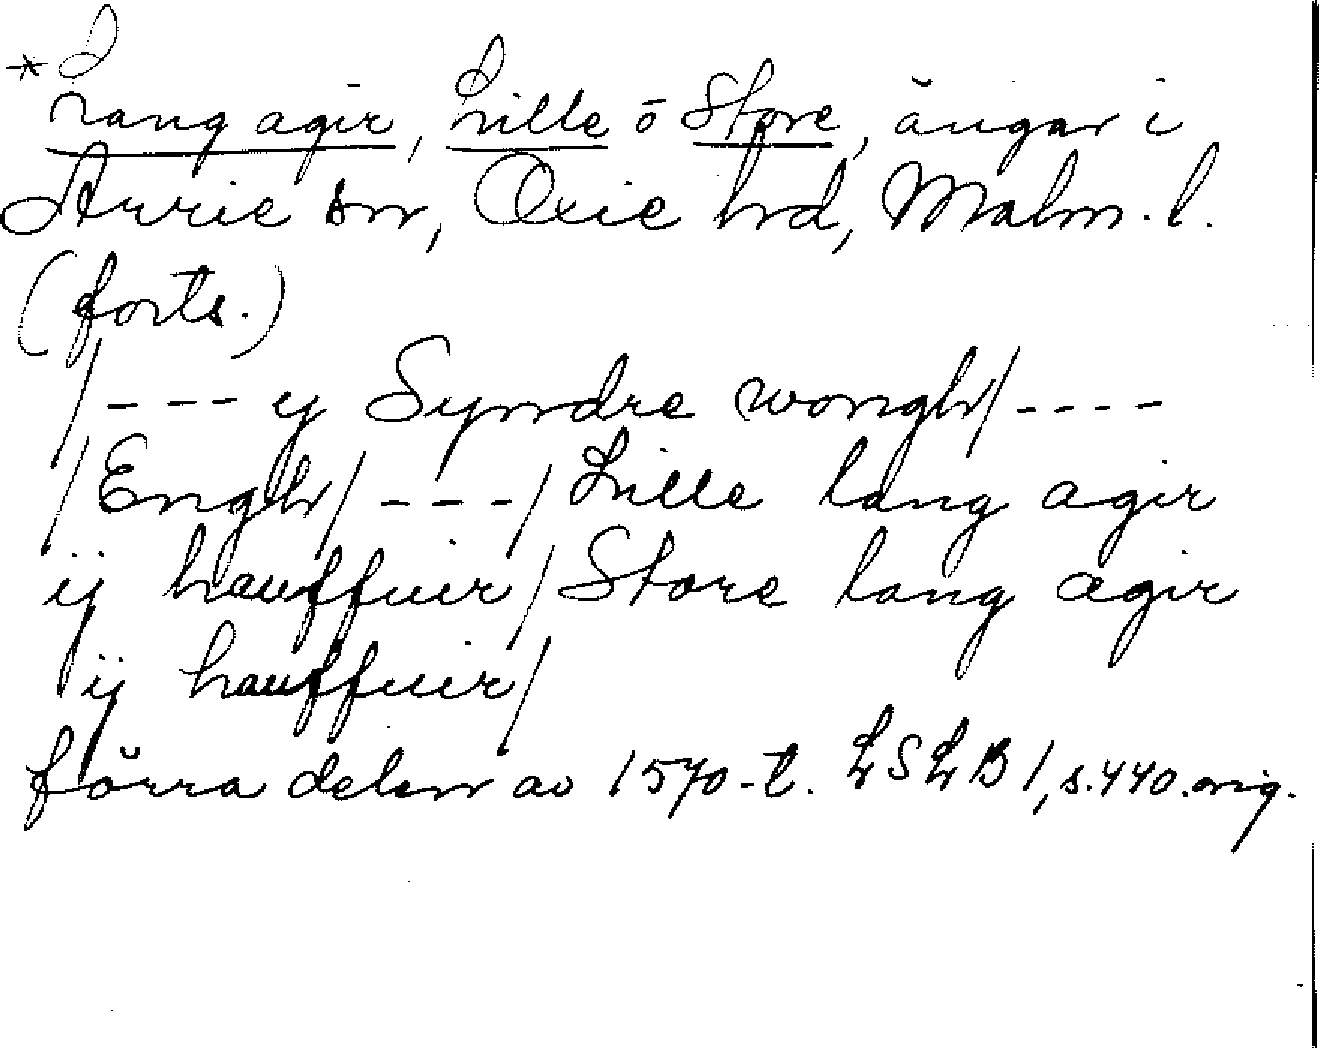 *Lang agir, Lille o Store, ängar i
Hyrie sn, Oxie hrd, Malm. l.
(forts.)
/--- y Syndre wongh/----
/Engh/---/Lille lang agir
ij hauffuer/Store lang agir
ij hauffuer/
förra delen av 1570-t. LSLB 1, s. 440. orig.